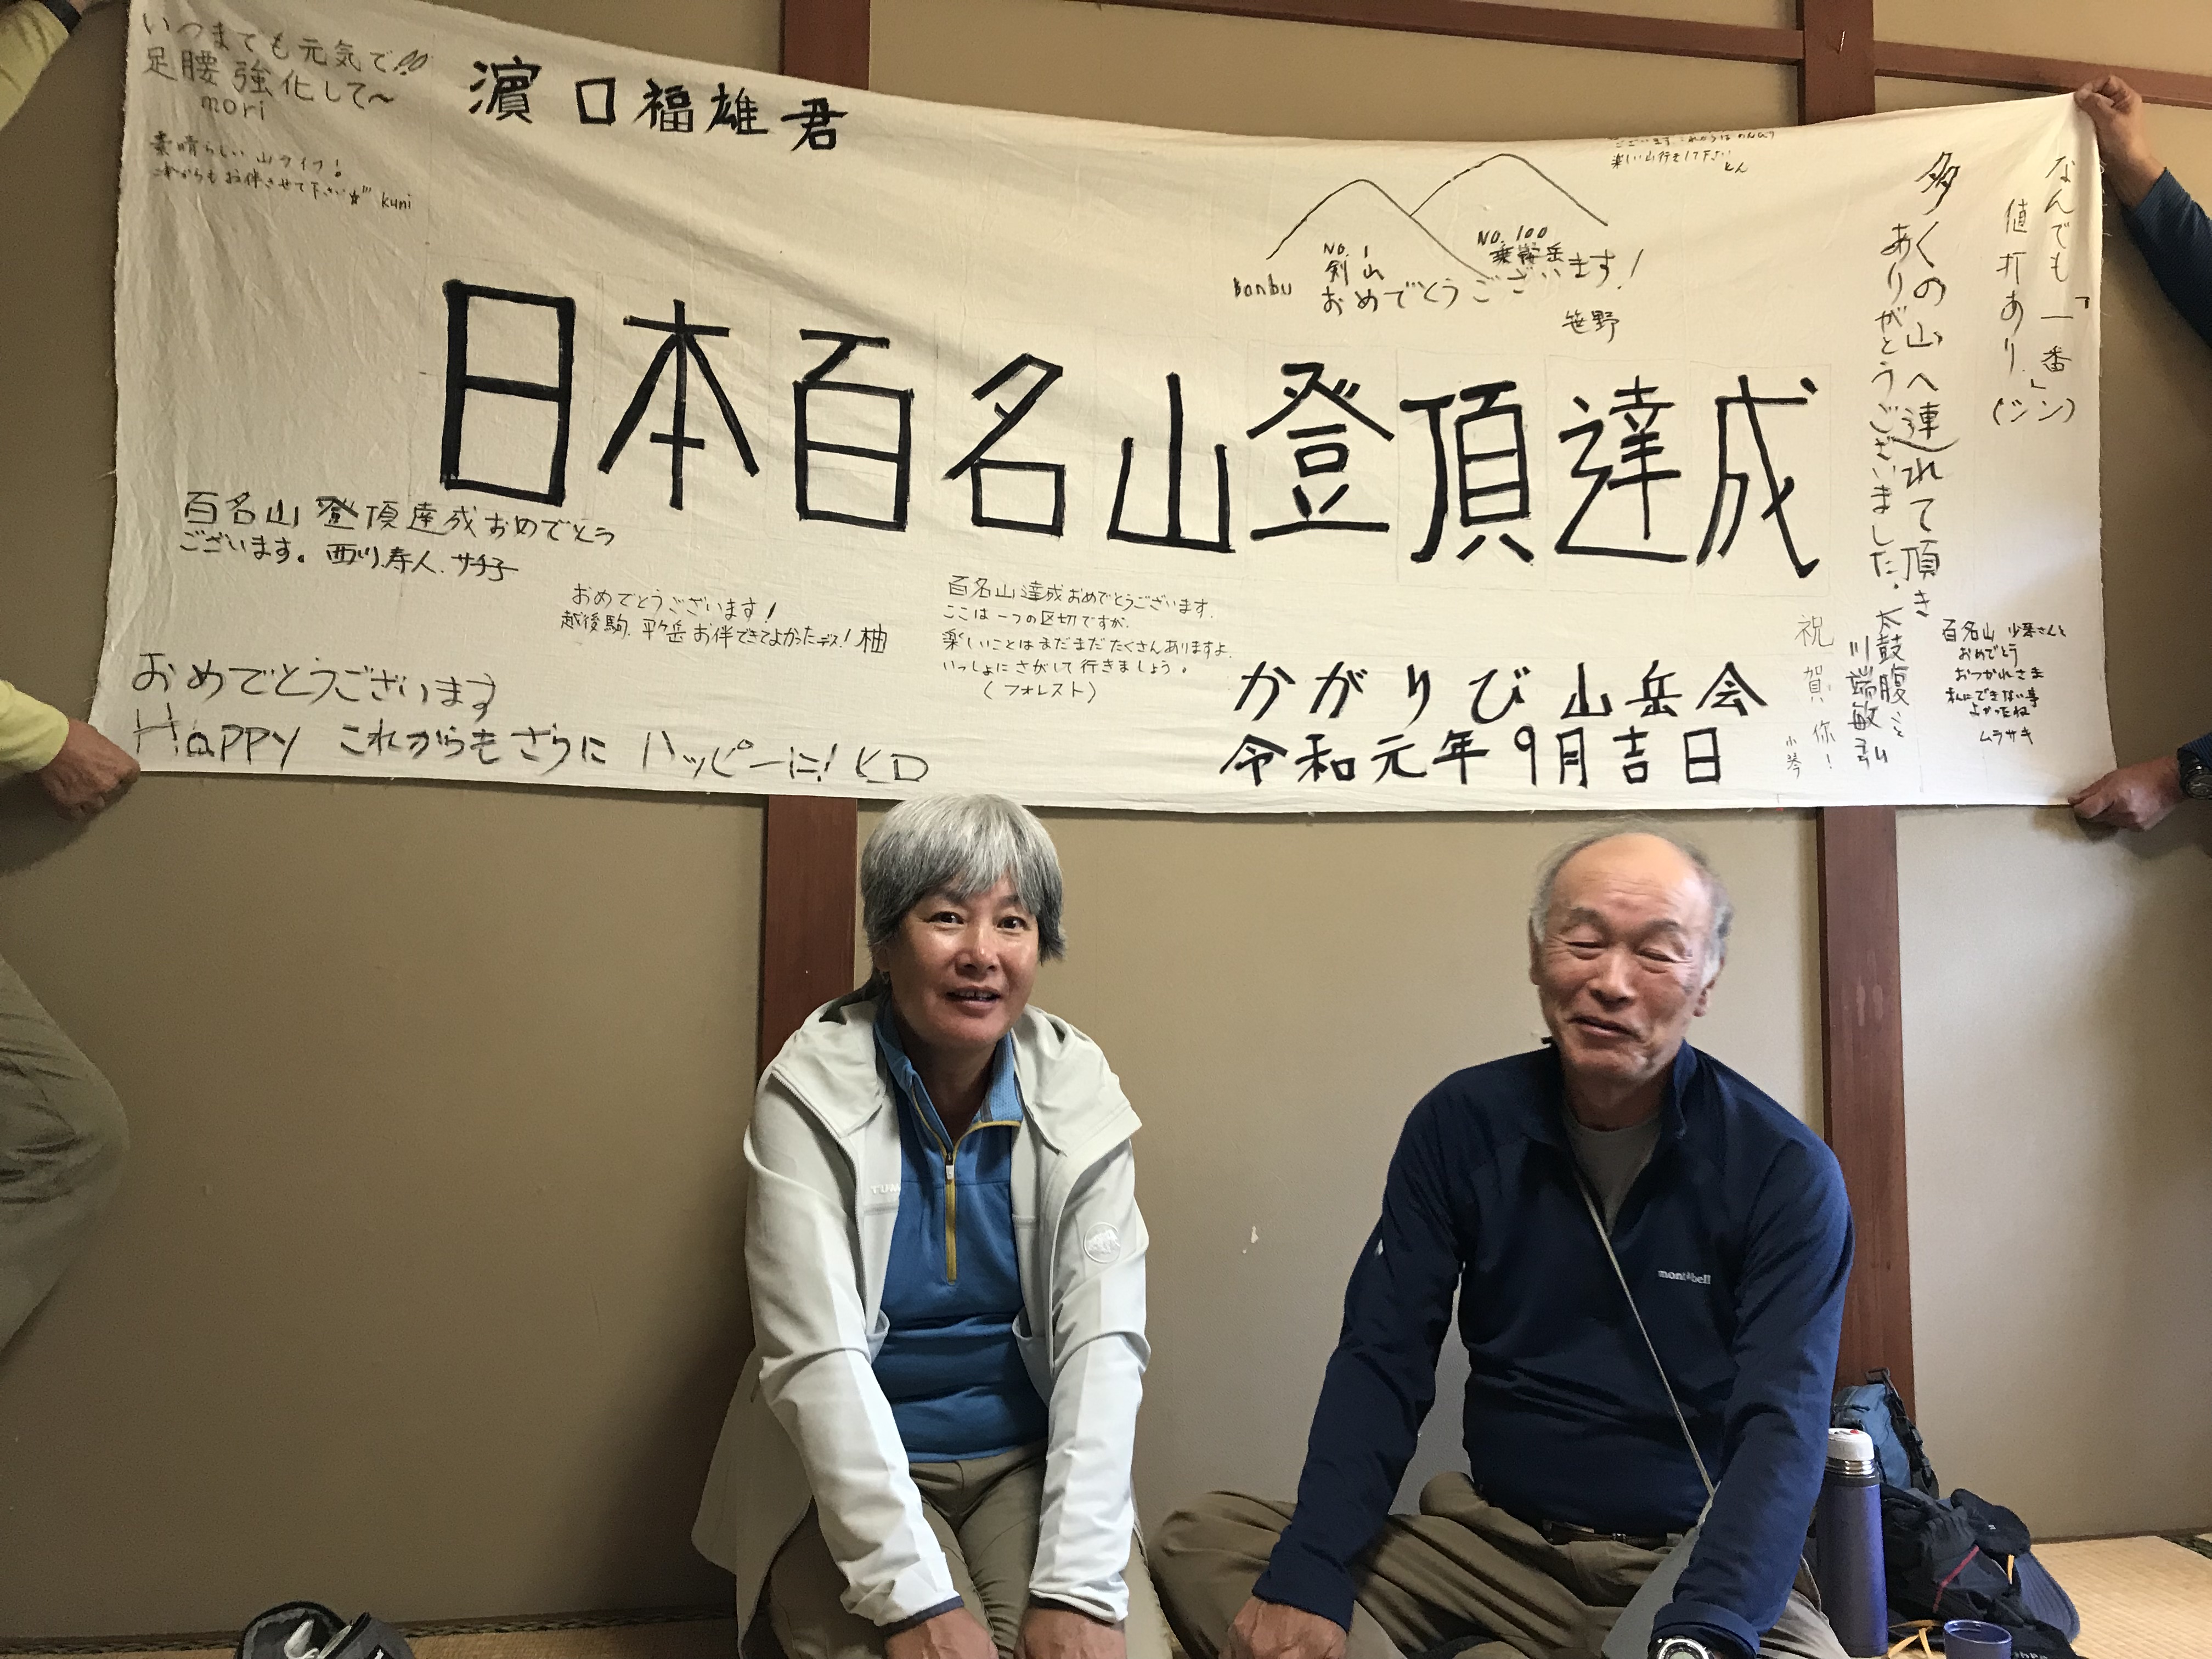 いつまでも元気で!!
足腰強化して〜
mori
素晴らしい山ライフ!
これからもお伴させて下さい☆ kuni
濵口福雄君
これからはのんびり
楽しい山行をして下さい
とん
NO.1
剣山
NO.100
乗鞍岳
Banbu
おめでとうございます!
笹野
日本百名山登頂達成
なんでも「一番」
値打あり(シン)
多くの山へ連れて頂き
ありがとうございました.
太鼓腹こと
川端敏弘
百名山登頂達成おめでとう
ございます。西川寿人.サチ子
おめでとうございます!
越後駒、平ケ岳お伴できてよかったデス!柚
百名山達成おめでとうございます.
ここは一つの区切ですが.
楽しいことはまだまだたくさんありますよ.
いっしょにさがして行きましょう。
(フォレスト)
おめでとうございます
Happy これからもさらに ハッピーに! KD
かがりび山岳会
令和元年9月吉日
祝賀你!
小琴
百名山
おめでとう
おつかれさま
私にできない事
よかったね
ムラサキ
mont-bell